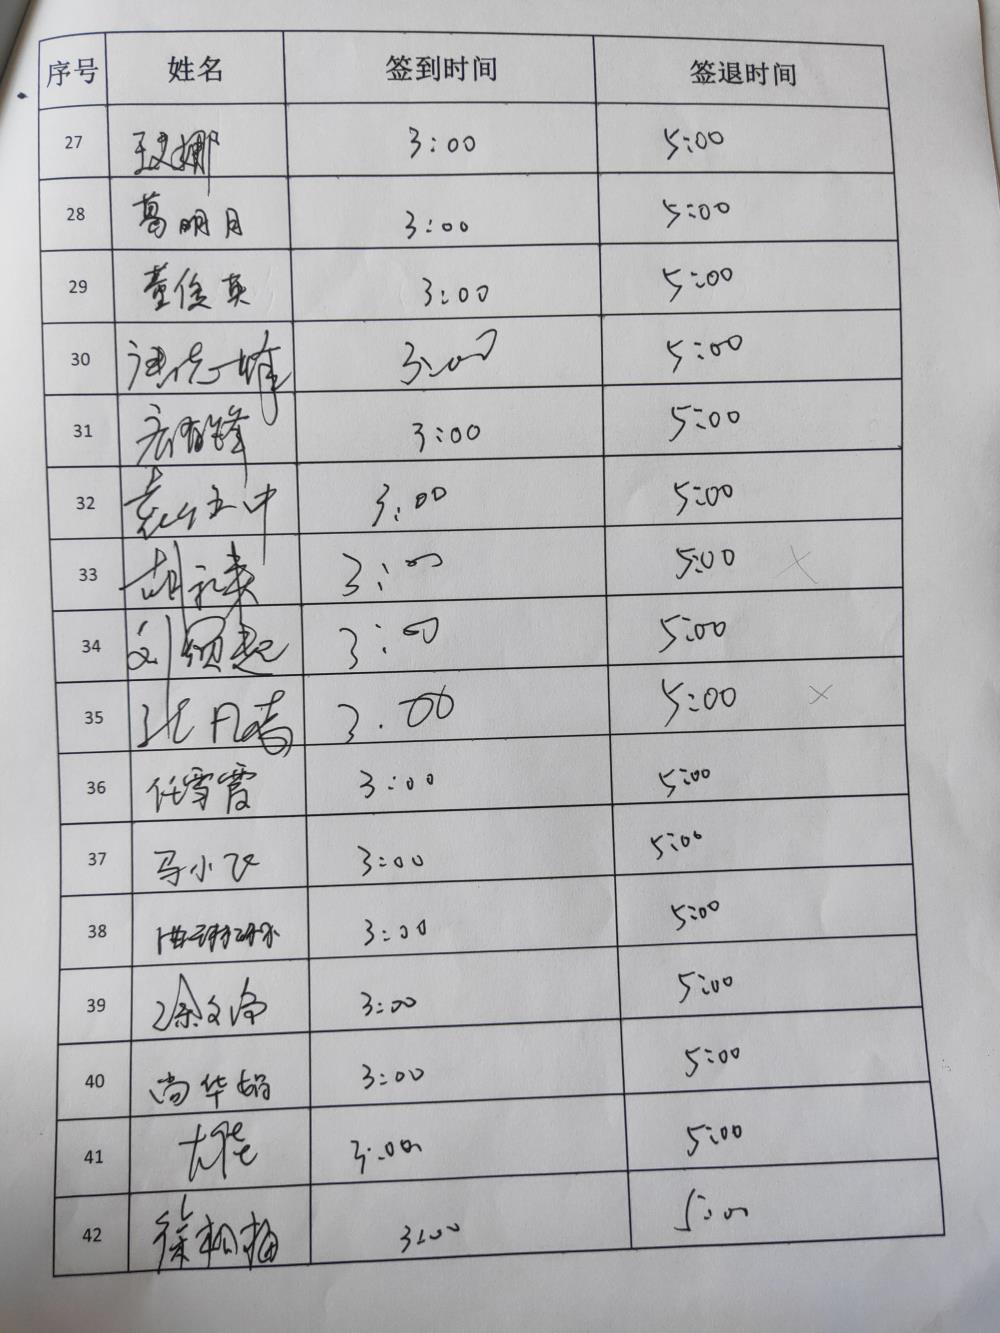 序号 姓名 签到时间 签退时间
27 3:00 5:00
28 葛明月 3:00 5:00
29 董俊英 3:00 5:00
30 3:00 5:00
31 3:00 5:00
32 3:00 5:00
33 3:00 5:00
34 3:00 5:00
35 3.00 5:00
36 任雪霞 3:00 5:00
37 马小飞 3:00 5:00
38 3:00 5:00
39 涂文净 3:00 5:00
40 尚华娟 3:00 5:00
41 3:00 5:00
42 徐相梅 3:00 5:00